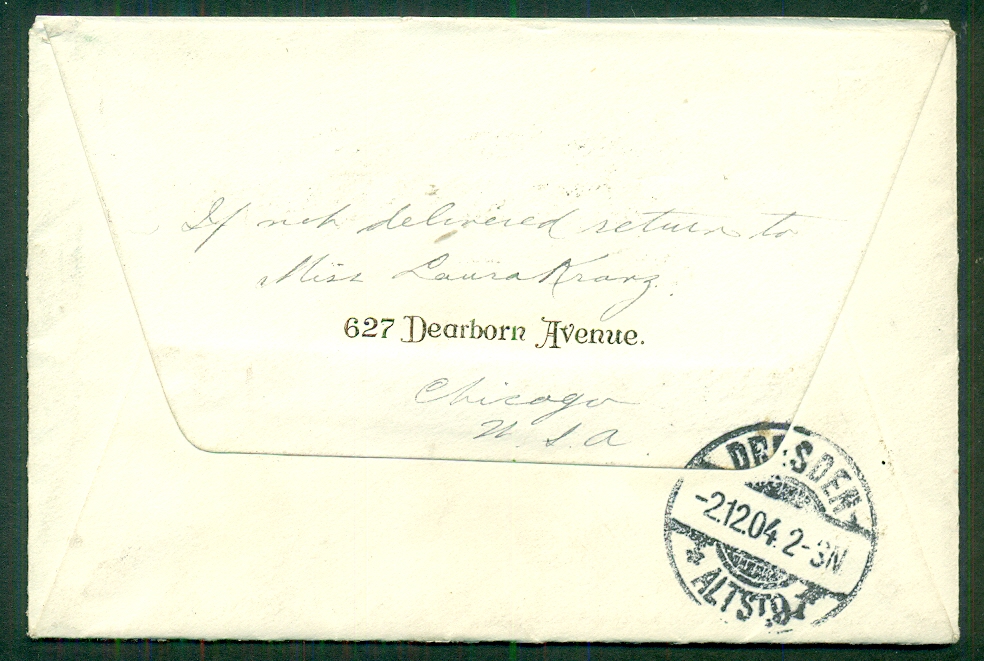 If not delivered return to
Miss Laura Kranz.
627 Dearborn Avenue.
Chicago
U.S.A
DRESDEN
-2.12.04.2-3N
* ALTST.